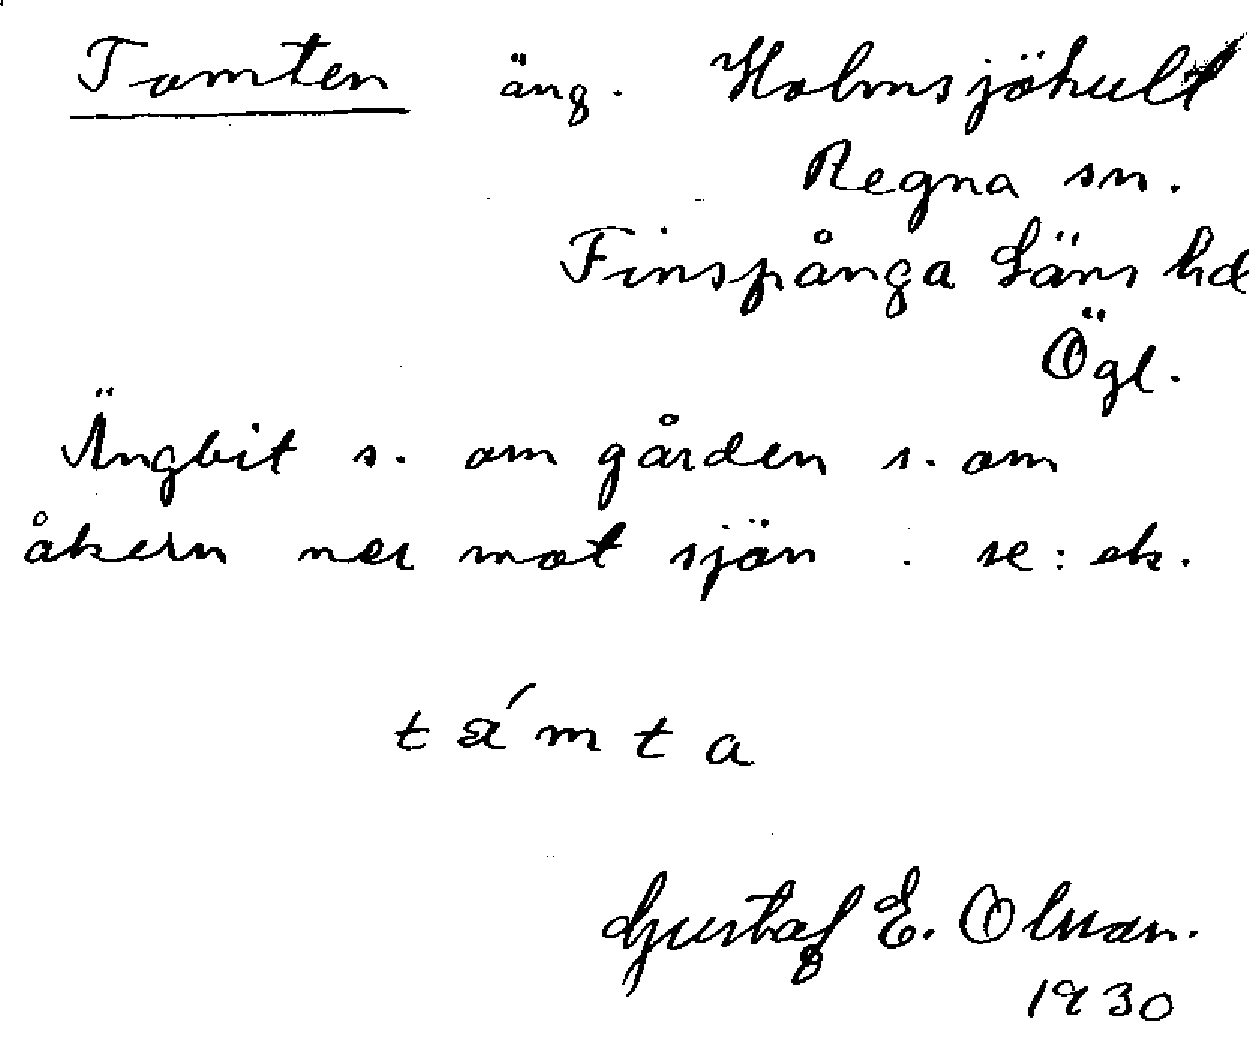 Tomten äng. Holmsjöhult
Regna sn.
Finspånga Läns hd
Ögl.
Ängbit s. om gården s. om
åkern ner mot sjön. se: ek.
támta
Gustaf E. Olsson.
1930